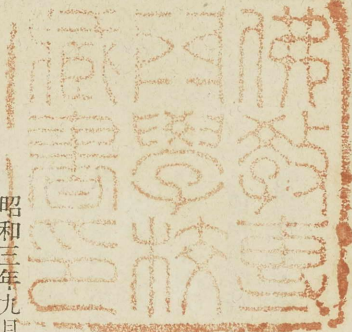 佛教專
門學校
藏書印
昭和三年九月